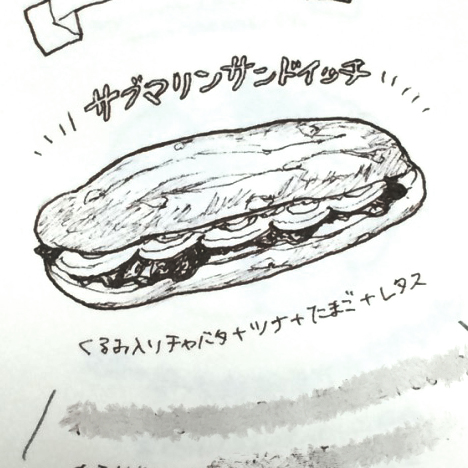 サブマリンサンドイッチ
くるみ入りチャバタ+ツナ+たまご+レタス